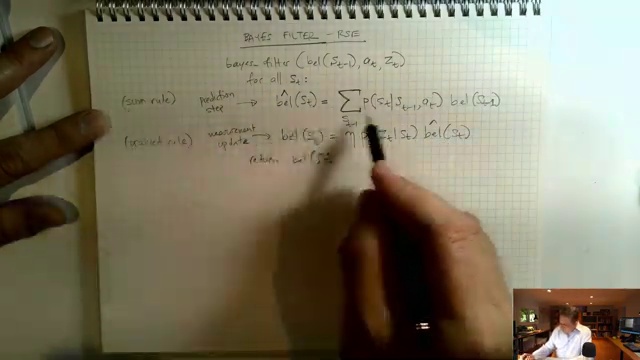 BAYES FILTER - RSE
bayes filter (bel(S_{t-1}), a_t, z_t)
for all S_t:
(sum rule) prediction step → bel^(S_t) = Σ_{S_{t-1}} p(S_t | S_{t-1}, a_t) bel(S_{t-1})
(product rule) measurement update → bel(S_t) = η p(z_t | S_t) bel^(S_t)
return bel(S_t